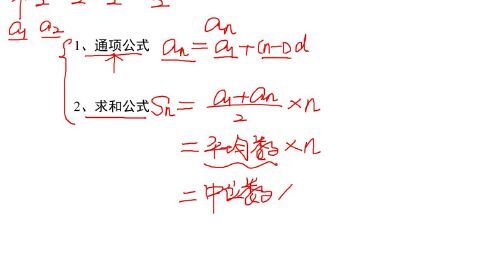 a₁ a₂
aₙ
1、通项公式 aₙ = a₁ + (n-1)d
2、求和公式 Sₙ = (a₁+aₙ)/2 × n
= 平均数 × n
= 中位数